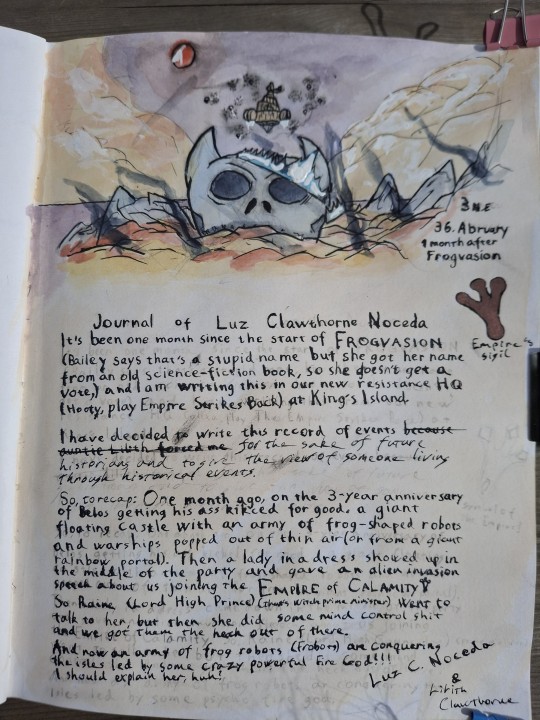 3 N.E.
36. Abruary
1 month after
Frogvasion
Empire's
sigil
Journal of Luz Clawthorne Noceda
It's been one month since the start of FROGVASION
(Bailey says that's a stupid name but she got her name
from an old science-fiction book, so she doesn't get a
vote,) and I am writing this in our new resistance HQ
(Hooty, play Empire Strikes Back) at King's Island.
I have decided to write this record of events because
auntie Lilith forced me for the sake of future
historians and to give the view of someone living
through historical events.
So, to recap: One month ago, on the 3-year anniversary
of Belos getting his ass kikced for good, a giant
floating castle with an army of frog-shaped robots
and warships popped out of thin air (or from a giant
rainbow portal). Then a lady in a dress showed up in
the middle of the party and gave an alien invasion
speech about us joining the EMPIRE OF CALAMITY
So Raine (Lord High Prince) (that's witch prime minister) went to
talk to her, but then she did some mind control shit
and we got them the heck out of there.
And now an army of frog robots (Frobots) are conquering
the isles led by some crazy powerful Fire God!!!
I should explain her, huh?
Luz C. Noceda
&
Lilith
Clawthorne